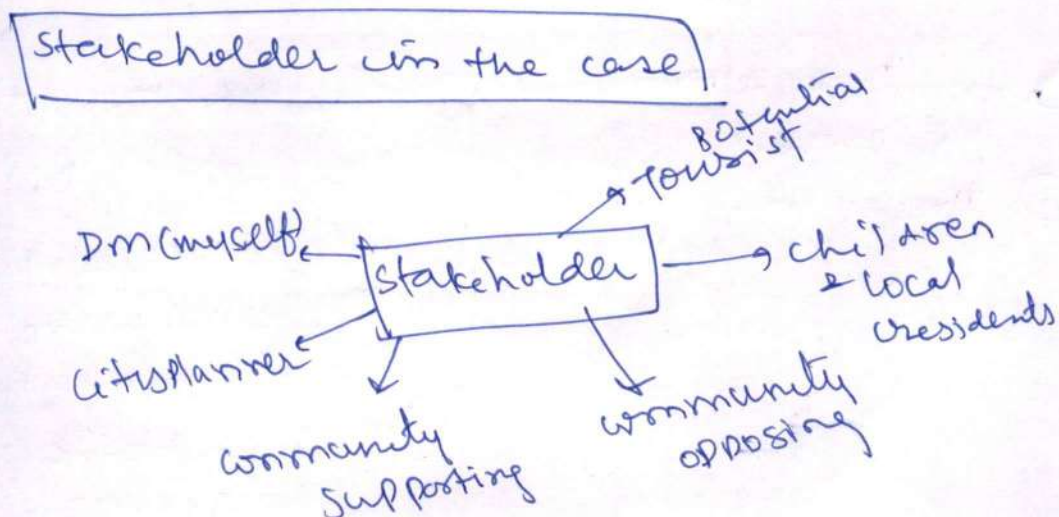 Stakeholder in the case
Potential
Tourist
DM (myself)
Stakeholder
children
& local
residents
City Planner
community
supporting
community
opposing